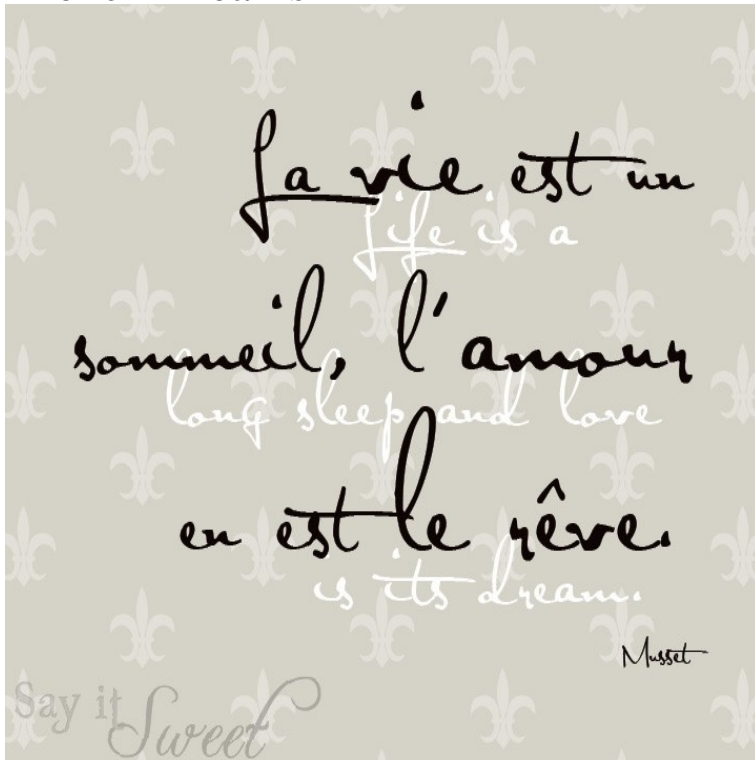 La vie est un
Life is a
sommeil, l'amour
long sleep and love
en est le rêve.
is its dream.
Musset
Say it Sweet